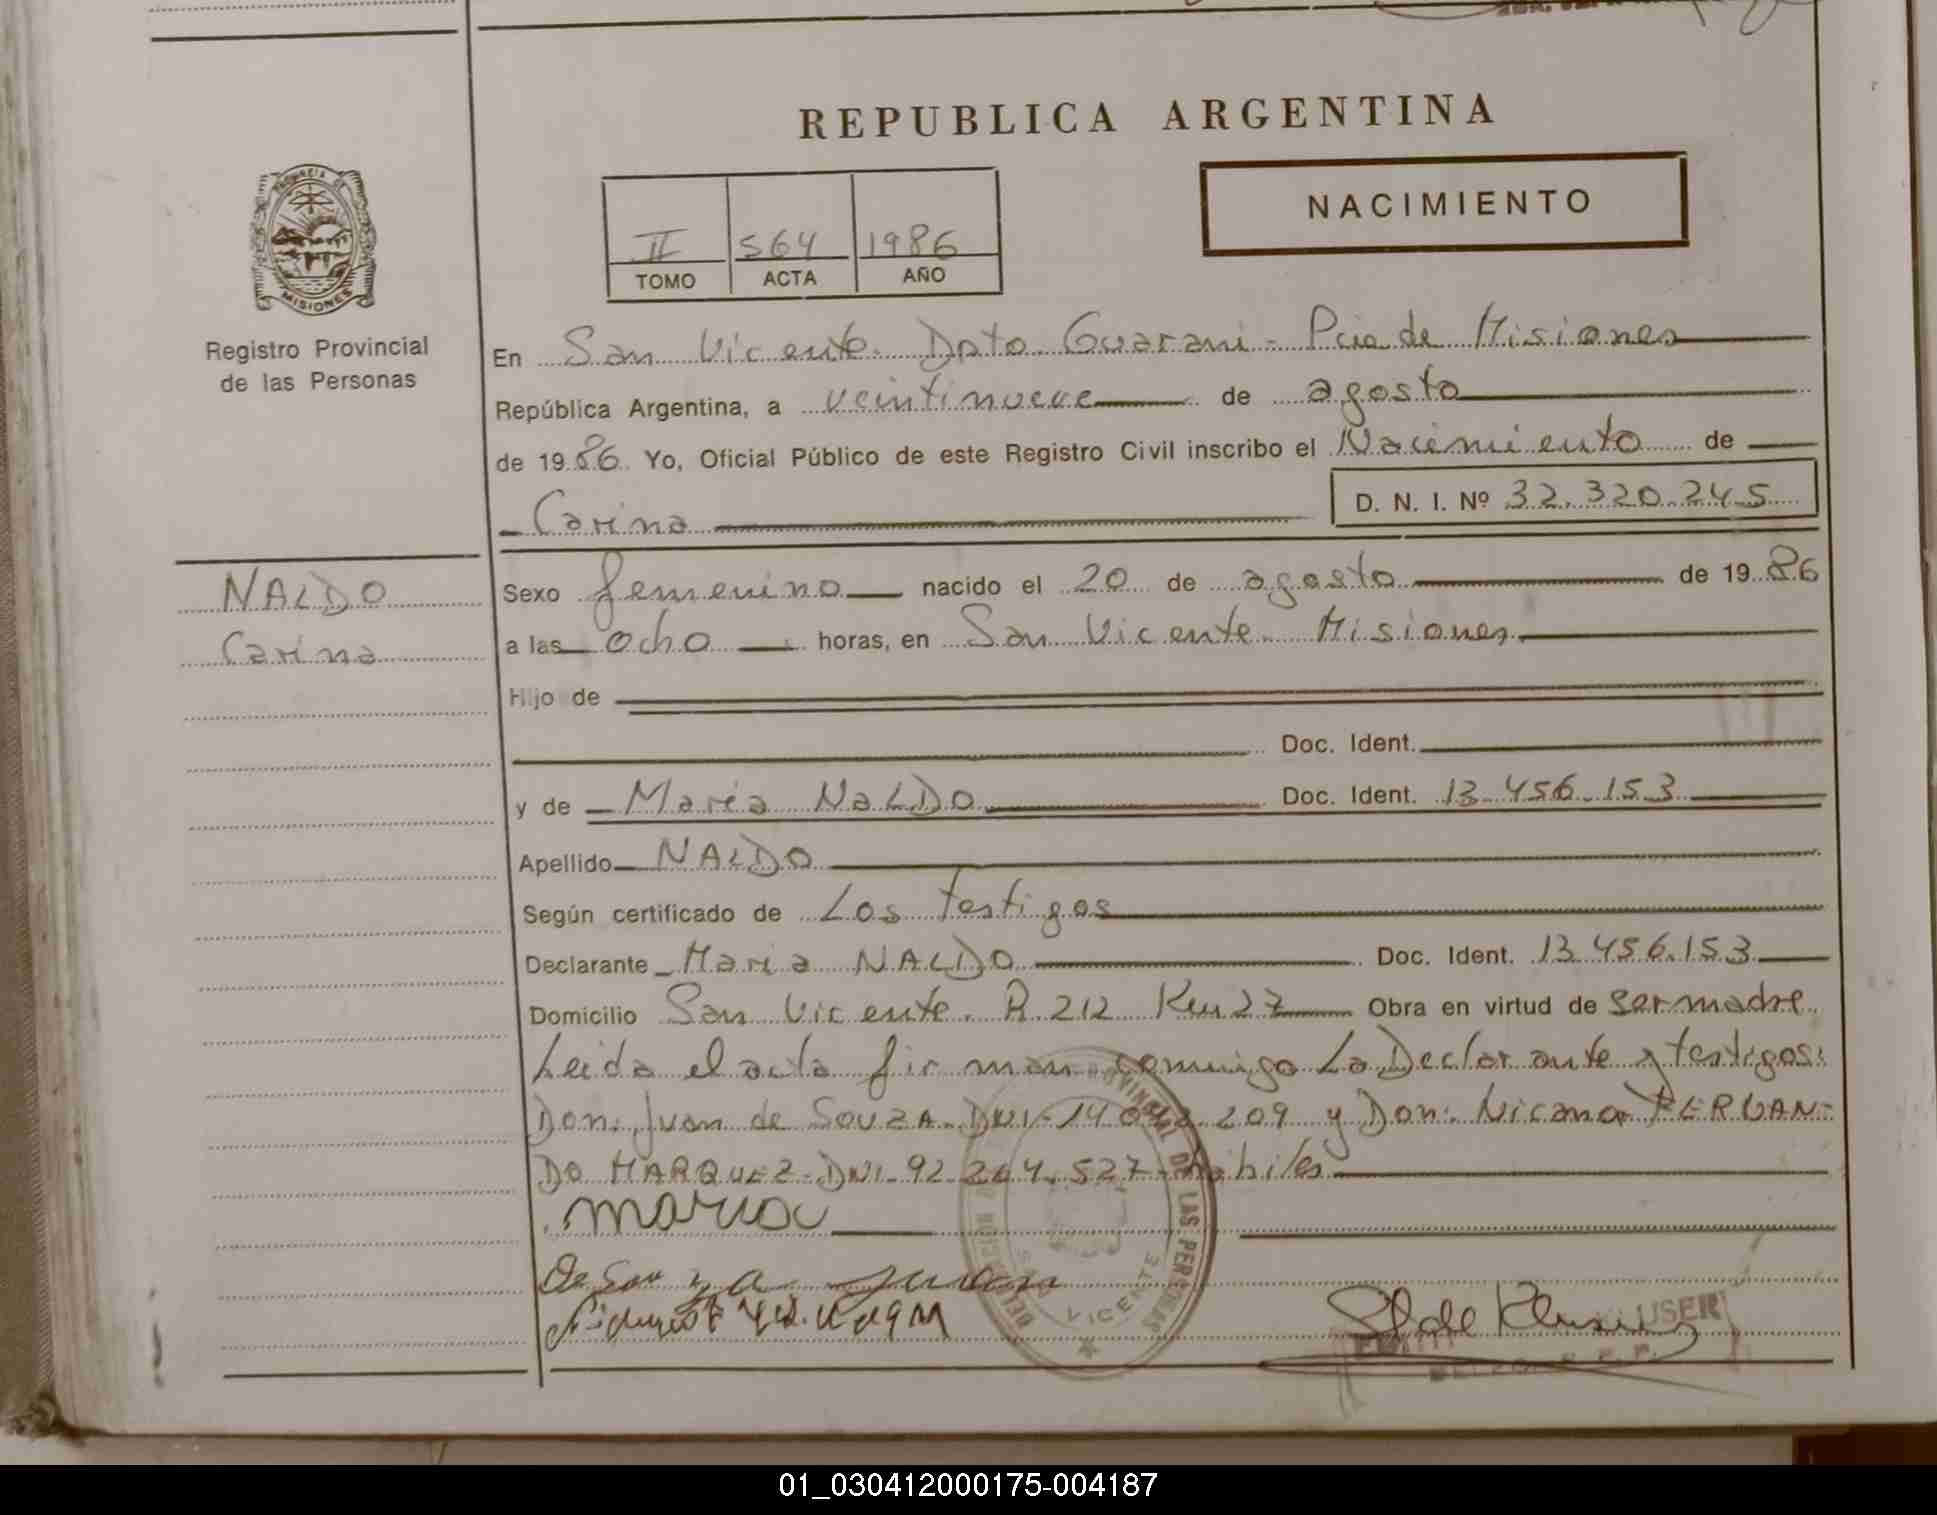 REPUBLICA ARGENTINA
PROVINCIA DE
MISIONES
Registro Provincial
de las Personas
II 564 1986
TOMO ACTA AÑO
NACIMIENTO
En San Vicente. Dpto Guarani - Pcia de Misiones
República Argentina, a veintinueve de agosto
de 1986. Yo, Oficial Público de este Registro Civil inscribo el Nacimiento de
Carina D. N. I. Nº 32.320.245
NALDO
Carina
Sexo femenino nacido el 20 de agosto de 1986
a las ocho horas, en San Vicente Misiones
Hijo de
Doc. Ident.
y de Maria NALDO Doc. Ident. 13.456.153
Apellido NALDO
Según certificado de Los testigos
Declarante Maria NALDO Doc. Ident. 13.456.153
Domicilio San Vicente. R. 212 Km 27 Obra en virtud de ser madre.
Leida el acta firman comigo La Declarante y testigos:
Don: Juan de SOUZA. DNI- 209 y Don: Nicanor FERNAN-
DO MARQUEZ- DNI- 92.264.527- habiles
maria
De Souza Juan
PROVINCIAL DE LAS PERSONAS
VICENTE
01_030412000175-004187